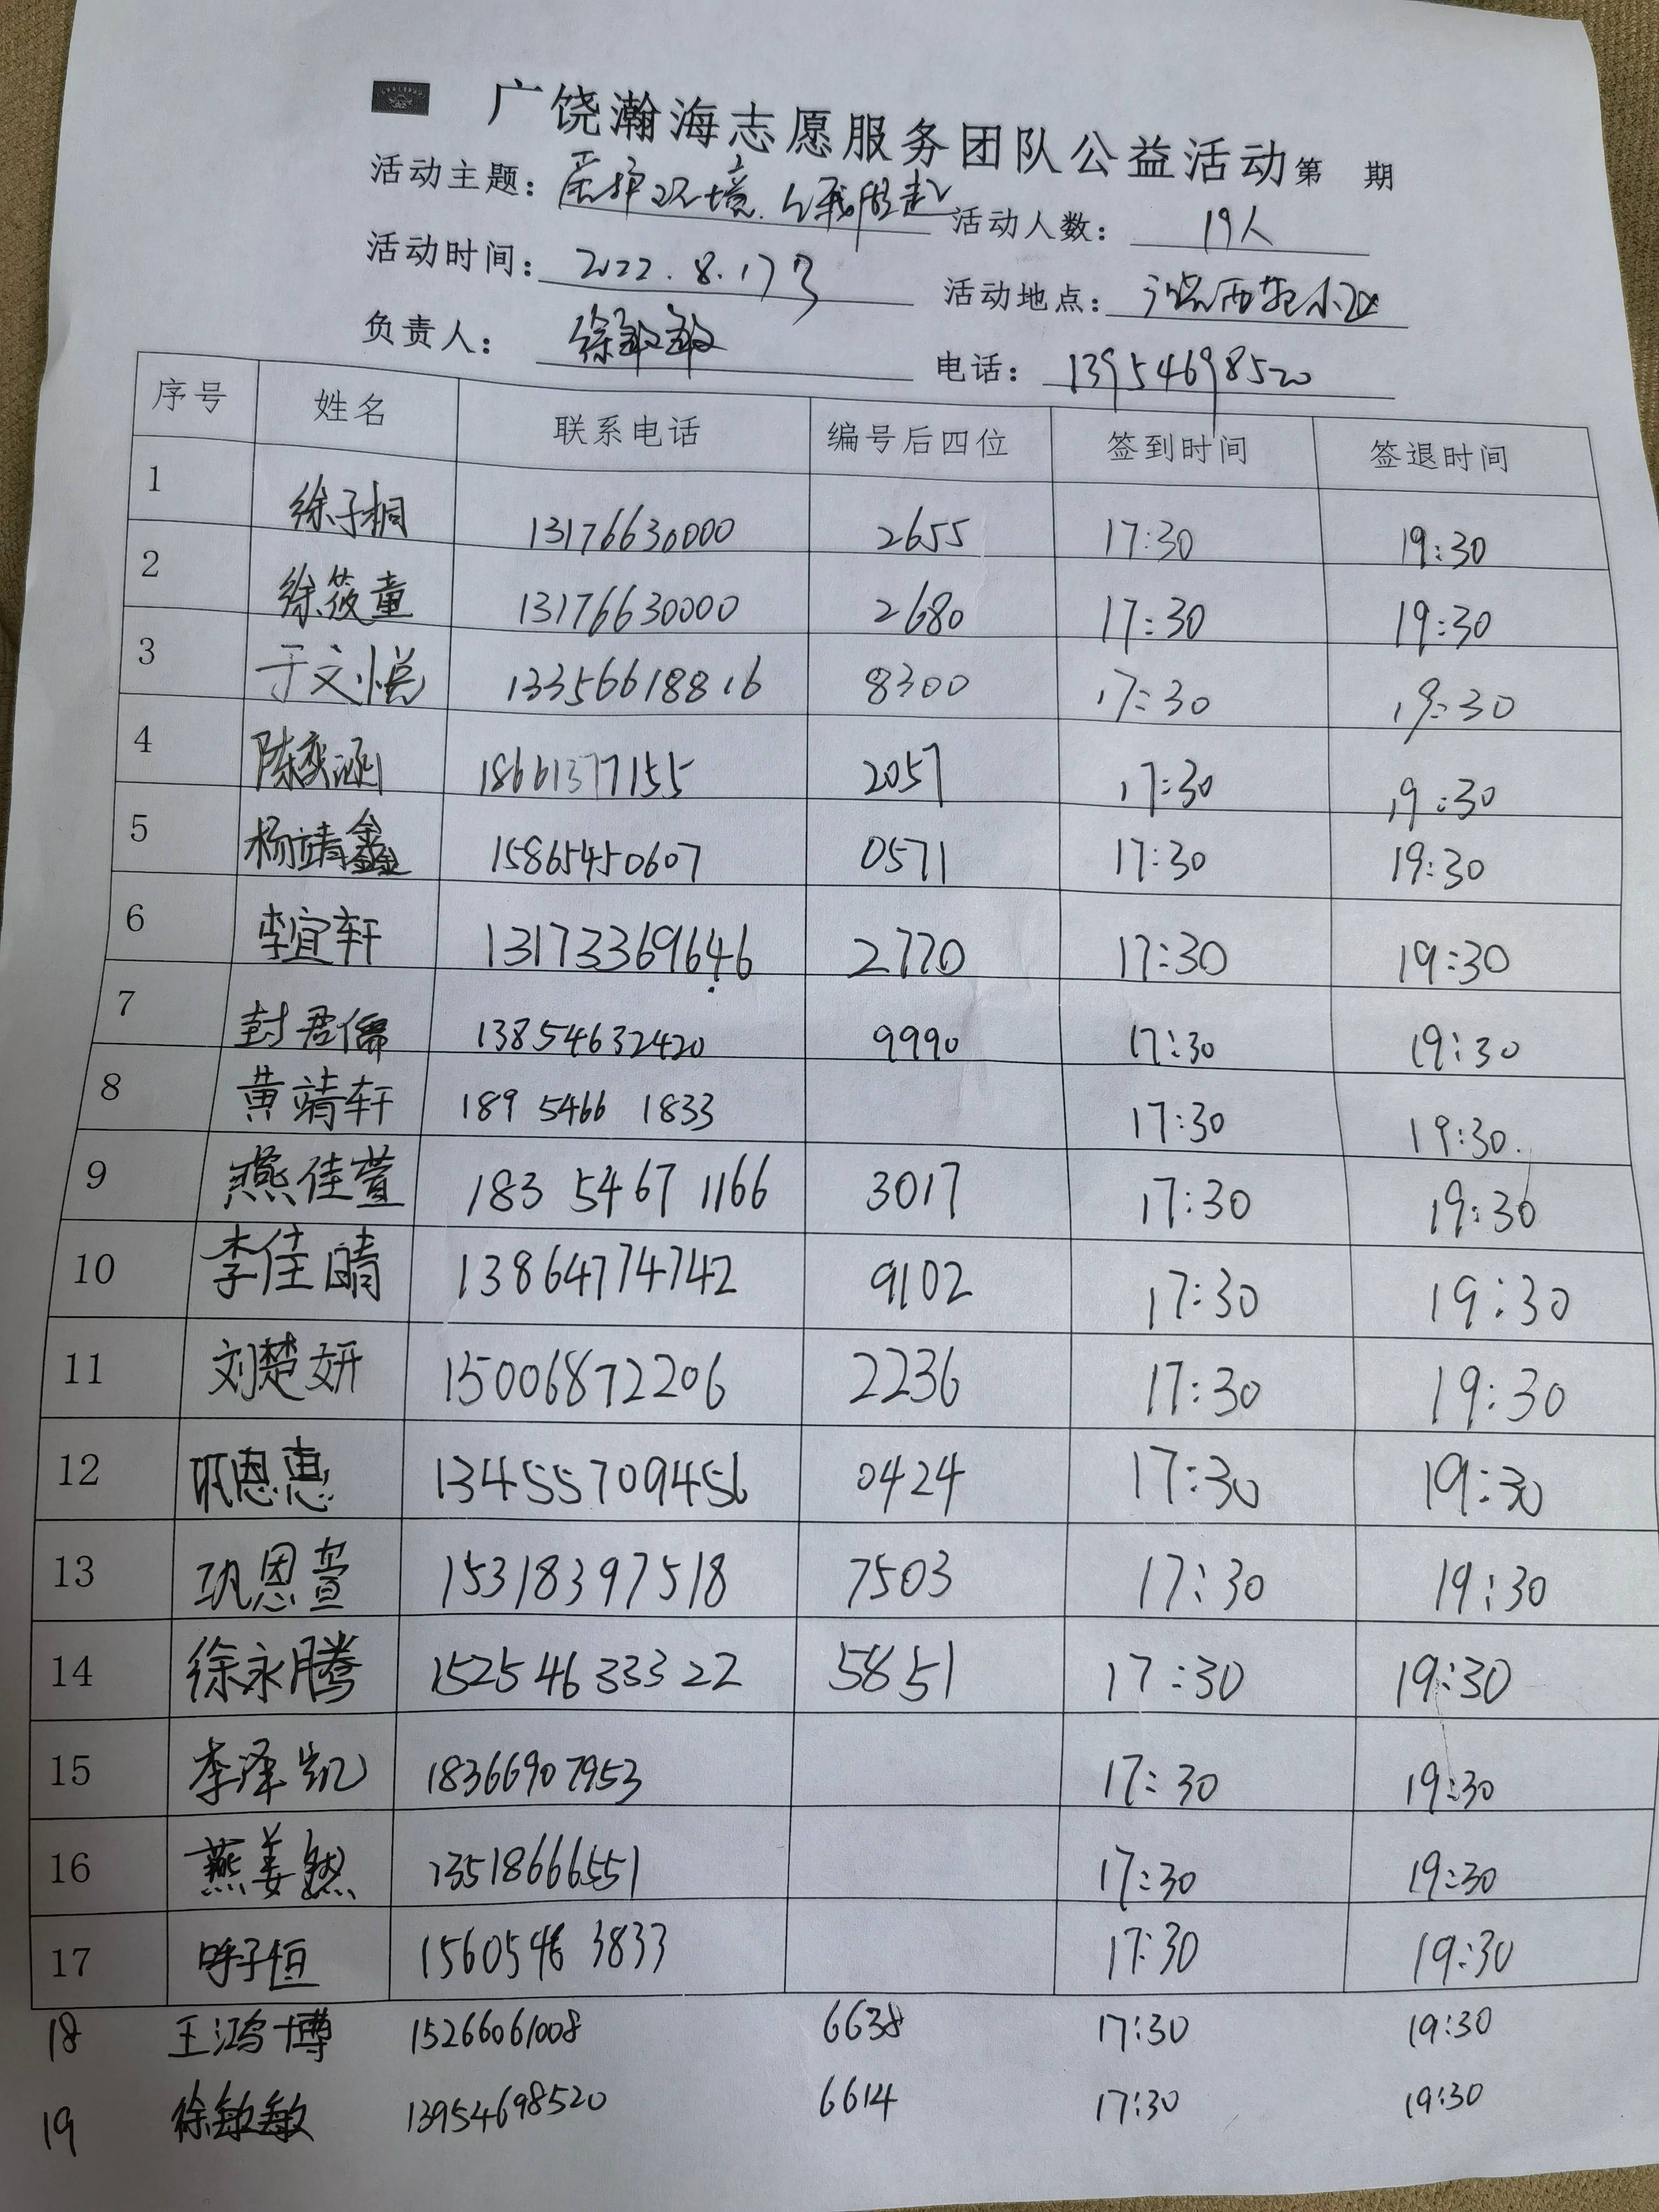 广饶瀚海志愿服务团队公益活动第 期
活动主题: 爱护环境.从我做起 活动人数: 19人
活动时间: 2022.8.17号 活动地点: 饶西苑小区
负责人: 徐敏敏 电话: 13954698520
序号 姓名 联系电话 编号后四位 签到时间 签退时间
1 徐子桐 13176630000 2655 17:30 19:30
2 徐筱童 13176630000 2680 17:30 19:30
3 于文悦 13356618816 8300 17:30 19:30
4 陈奕涵 18661377155 2057 17:30 19:30
5 杨靖鑫 15865450607 0571 17:30 19:30
6 李宜轩 13173369646 2770 17:30 19:30
7 封君儒 13854632420 9990 17:30 19:30
8 黄靖轩 189 5466 1833 17:30 19:30.
9 燕佳萱 183 5467 1166 3017 17:30 19:30
10 李佳晴 13864774742 9102 17:30 19:30
11 刘楚妍 15006872206 2236 17:30 19:30
12 巩恩惠 134555709456 0424 17:30 19:30
13 巩恩萱 15318397518 7503 17:30 19:30
14 徐永腾 15254633322 5851 17:30 19:30
15 李泽凯 18366907953 17:30 19:30
16 燕姜然 13518666551 17:30 19:30
17 呼子恒 1560546 3833 17:30 19:30
18 王鸿博 15266061008 6638 17:30 19:30
19 徐敏敏 13954698520 6614 17:30 19:30